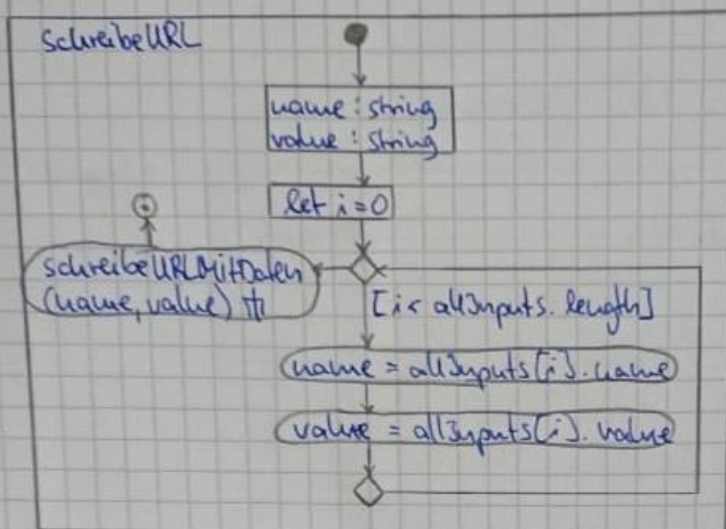 schreibeURL
name : string
value : string
let i = 0
schreibeURLMitDaten
(name, value)
[i < allInputs.length]
name = allInputs[i].name
value = allInputs[i].value